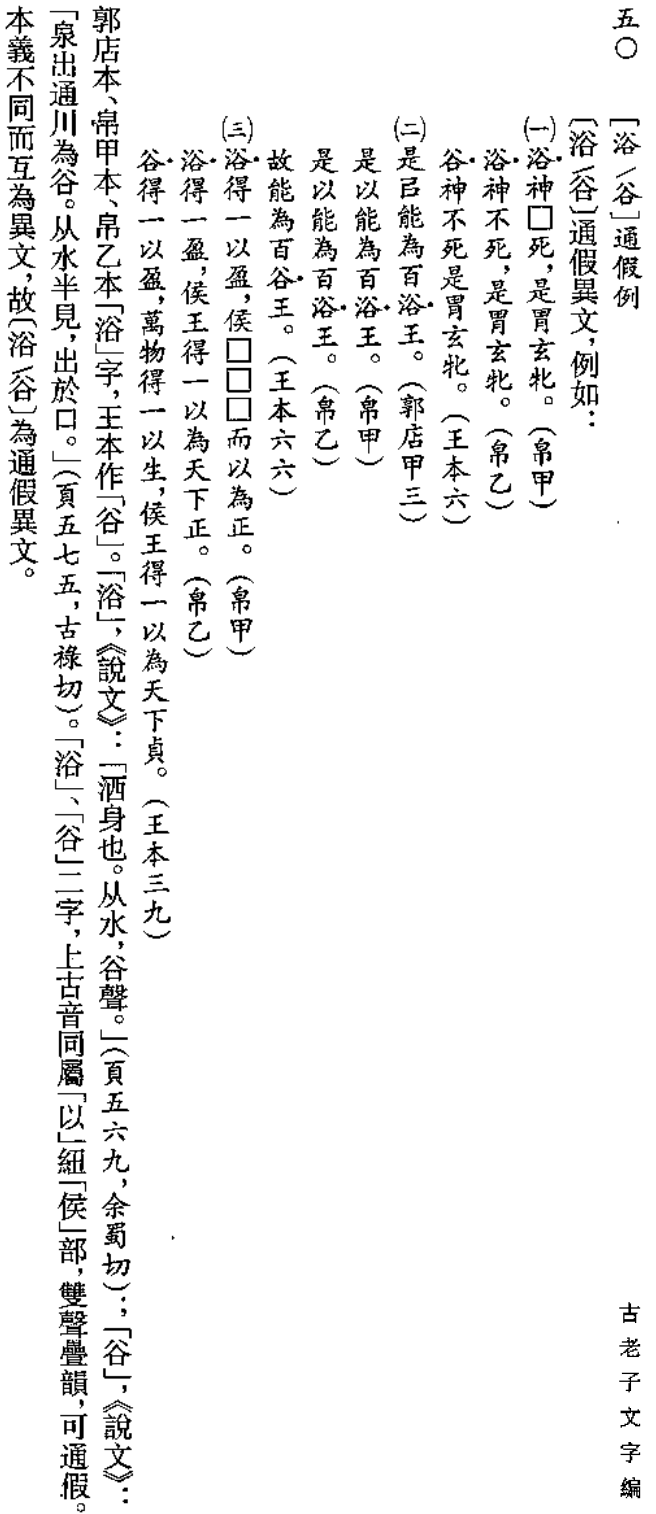 五〇
古老子文字編
［浴／谷］通假例
〔浴／谷〕通假異文，例如：
㈠浴神□死，是胃玄牝。（帛甲）
浴神不死，是胃玄牝。（帛乙）
谷神不死是胃玄牝。（王本六）
㈡是㠯能為百浴王。（郭店甲三）
是以能為百浴王。（帛甲）
是以能為百浴王。（帛乙）
故能為百谷王。（王本六六）
㈢浴得一以盈，侯□□□而以為正。（帛甲）
浴得一盈，侯王得一以為天下正。（帛乙）
谷得一以盈，萬物得一以生，侯王得一以為天下貞。（王本三九）
郭店本、帛甲本、帛乙本「浴」字，王本作「谷」。「浴」，《說文》：「洒身也。从水，谷聲。」（頁五六九，余蜀切）；「谷」，《說文》：
「泉出通川為谷。从水半見，出於口。」（頁五七五，古祿切）。「浴」、「谷」二字，上古音同屬「以」紐「侯」部，雙聲疊韻，可通假。
本義不同而互為異文，故〔浴／谷〕為通假異文。